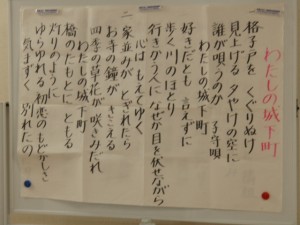 わたしの城下町
格子戸を くぐりぬけ
見上げる 夕やけの空に
誰が唄うのか 子守唄
わたしの城下町
好きだとも 言えずに
歩く川のほとり
行きかう人に なぜか目を伏せながら
心は もえてゆく
二
家並みが とぎれたら
お寺の鐘が きこえる
四季の草花が 咲きみだれ
わたしの城下町
橋のたもとに ともる
灯りのように
ゆらゆれる 初恋のもどかしさ
気まずく 別れたの